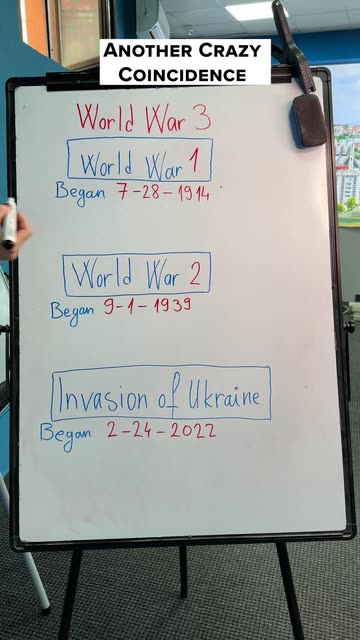 ANOTHER CRAZY
COINCIDENCE
World War 3
World War 1
Began 7-28-1914
World War 2
Began 9-1-1939
Invasion of Ukraine
Began 2-24-2022